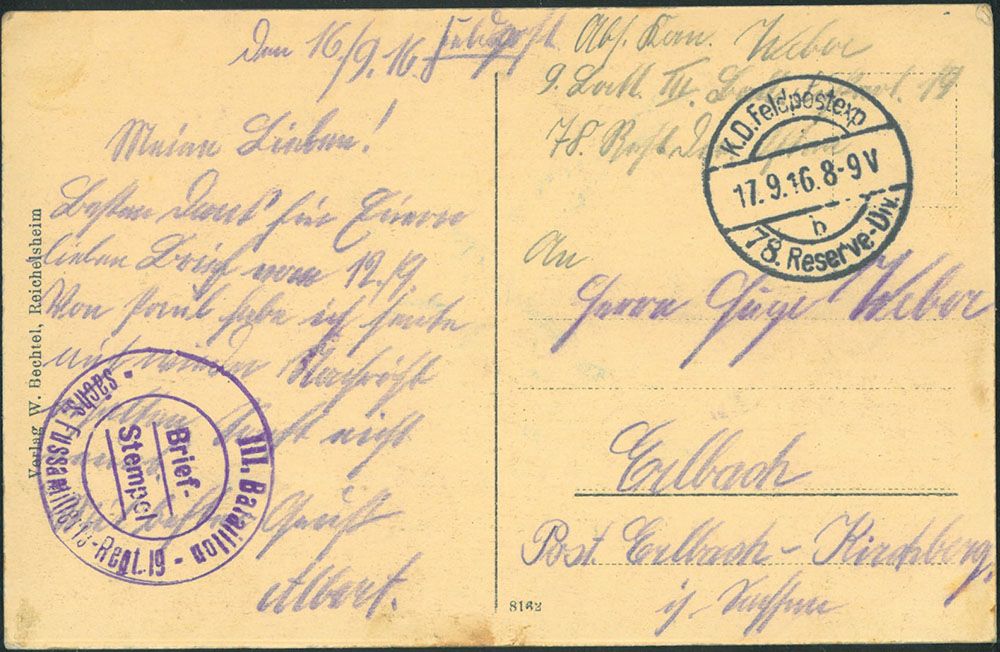 den 16/9.16. Feldpost
Meine Lieben!
Besten Dank für Euern
lieben Brief vom 12./9.
Von Paul habe ich heute
mal wieder Nachricht
erhalten. Sonst nicht
Gruß
Albert.
Abs. Kan. Weber
9. Batt. III. Batl. 19
78. Res. Division
An
Herrn Hugo Weber
Erlbach
Post. Erlbach-Kirchberg,
i/ Sachsen
K.D. Feldpostexp.
17.9.16. 8-9 V
b
78. Reserve-Div.
III. Bataillon - Sächs. Fussartillerie-Regt. 19 -
Brief-
Stempel
Verlag W. Bechtel, Reichelsheim
8162